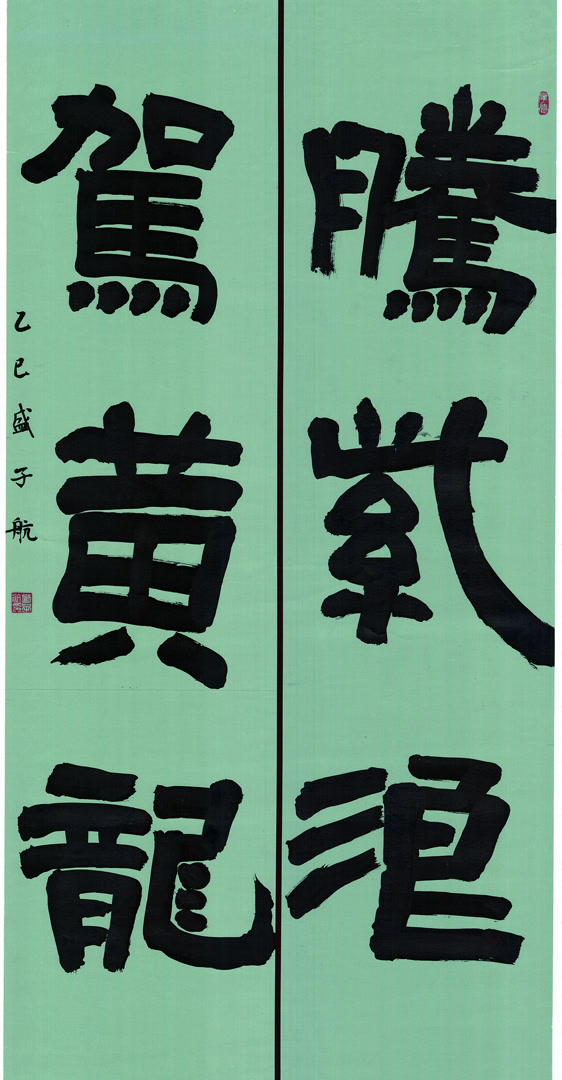 騰紫
駕黃龍
乙巳盛子航